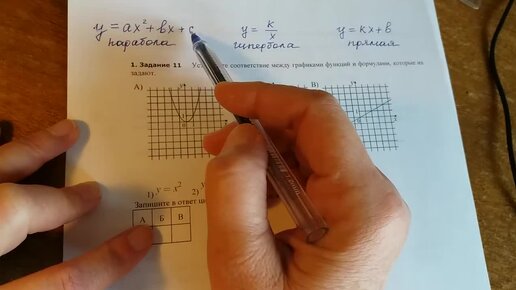 y = ax² + bx + c
y = k/x
y = kx + b
парабола
гипербола
прямая
1. Задание 11 Ус те соответствие между графиками функций и формулами, которые их
задают.
А)
В)
1) y = x²
2)
Запишите в ответ ц
А Б В